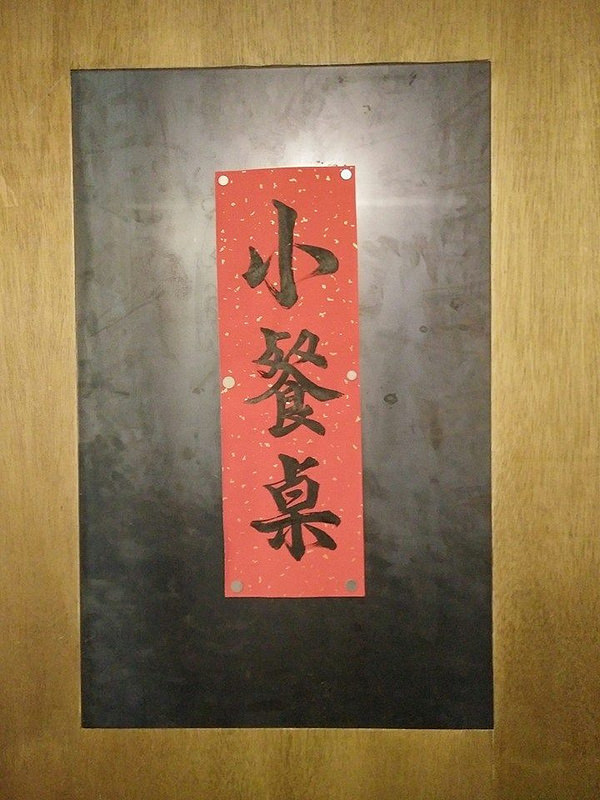 小餐桌